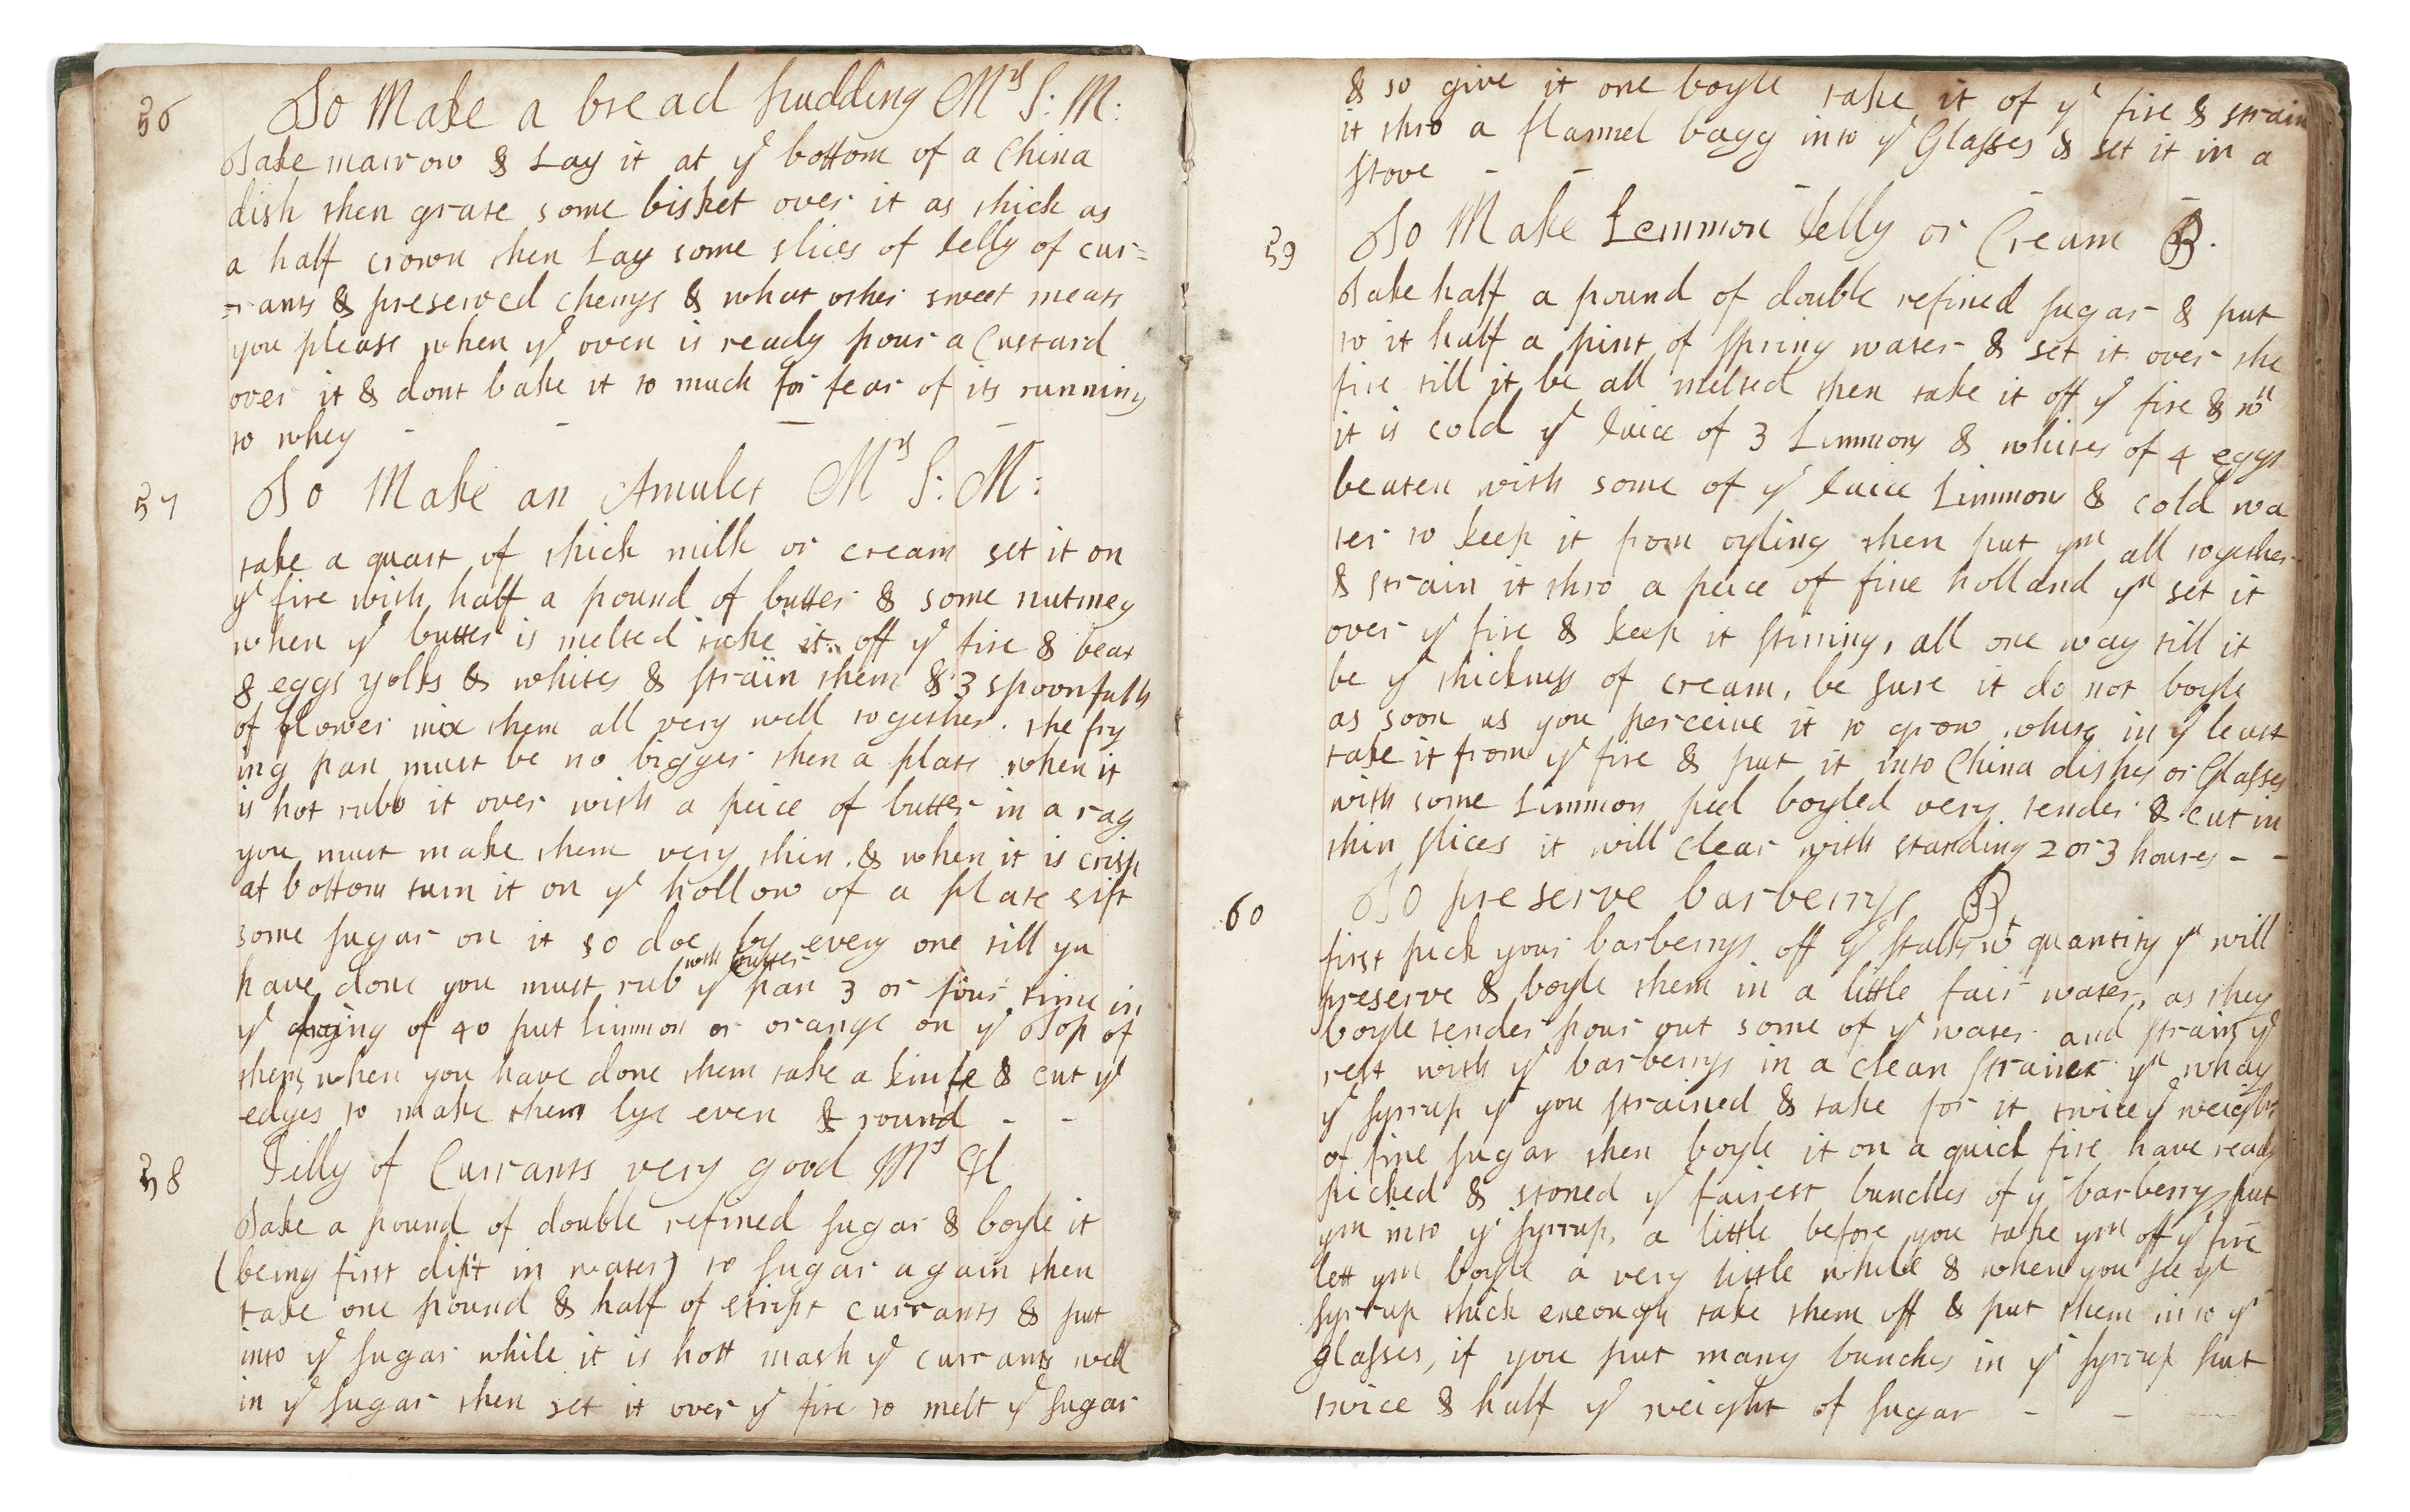 56 To Make a bread pudding Mrs S: M:
Take marrow & Lay it at ye bottom of a China
dish then grate some bisket over it as thick as
a half crown then Lay some slices of Jelly of cur=
=rants & preserved cherrys & what other sweet meats
you please when ye oven is ready pour a Custard
over it & dont bake it to much for fear of its running
to whey - - - -
57 To Make an Amulet Mrs S: M:
take a quart of thick milk or cream set it on
ye fire with half a pound of butter & some nutmeg
when ye butter is melted take it off ye fire & beat
8 eggs yolks & whites & strain them & 3 spoonfulls
of flower mix them all very well together. the fry
ing pan must be no bigger then a plate when it
is hot rubb it over with a peice of butter in a rag
you must make them very thin. & when it is crisp
at bottom turn it on ye hollow of a plate sift
some sugar on it so doe by every one till yu
have done you must rub with butter ye pan 3 or four time in
ye frying of 40 put limmon or orange on ye Top of
them, when you have done them take a knife & cut ye
edges to make them lye even & round - -
58 Jelly of Currants very good Mrs H
Take a pound of double refined sugar & boyle it
(being first dipt in water) to sugar again then
take one pound & half of stript currants & put
into ye sugar while it is hott mash ye currants well
in ye sugar then set it over ye fire to melt ye sugar
& so give it one boyle take it of ye fire & strain
it thro a flannel bagg into ye Glasses & set it in a
stove - - - - -
59 To Make Lemmon Jelly or Cream B.
Take half a pound of double refined sugar & put
to it half a pint of spring water & set it over the
fire till it be all melted then take it off ye fire & wn
it is cold ye Juice of 3 Limmons & whites of 4 eggs
beaten with some of ye Juice Limmon & cold wa
ter to keep it from oyling then put ym all together
& strain it thro a peice of fine holland yn set it
over ye fire & keep it stirring, all one way till it
be ye thickness of cream, be sure it do not boyle
as soon as you perceive it to grow white in ye least
take it from ye fire & put it into China dishes or Glasses
with some Limmon peel boyled very tender & cut in
thin slices it will clear with standing 2 or 3 houres - -
60 To preserve barberrys B
first pick your barberrys off ye stalks wt quantity yu will
preserve & boyle them in a little fair water, as they
boyle tender pour out some of ye water and strain ye
rest with ye barberrys in a clean strainer yn whay
ye syrrup yt you strained & take for it twice ye weight
of fine sugar then boyle it on a quick fire have ready
picked & stoned ye fairest bunches of ye barberrys put
ym into ye syrrup, a little before you take ym off ye fire
lett ym boyle a very little while & when you see ye
syrrup thick eneough take them off & put them into ye
glasses, if you put many bunches in ye syrrup put
twice & half ye weight of sugar - - -